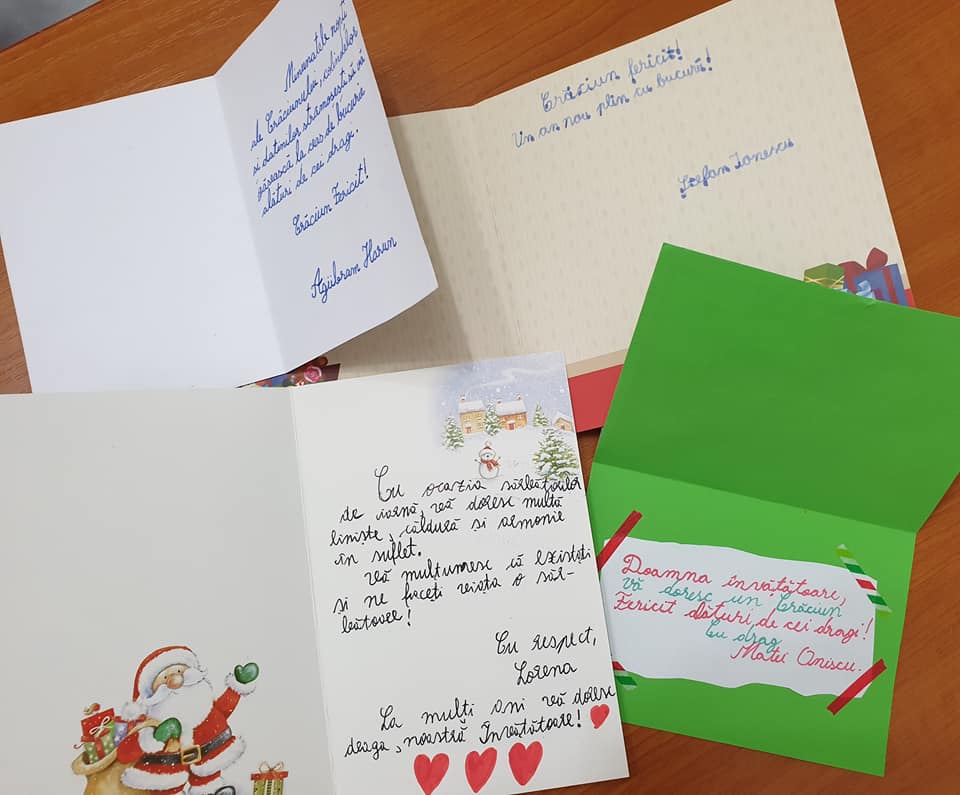 Minunatele nopți
ale Crăciunului, colindelor
si datinilor strămosesti să vă
găsească la ceas de bucurie
alături de cei dragi.
Crăciun Fericit!
Agiibram Harun
Crăciun fericit!
Un an nou plin cu bucurii!
Ștefan Ionescu
Cu ocazia sărbătorilor
de iarnă, vă doresc multă
liniște, căldură și armonie
în suflet.
Vă mulțumesc că existați
și ne faceți viața o săr-
bătoare!
Cu respect,
Lorena
La mulți ani vă doresc
draga, noastră Învățătoare!
Doamna învățătoare,
vă doresc un Crăciun
Fericit alături de cei dragi!
Cu drag
Matei Oniscu.